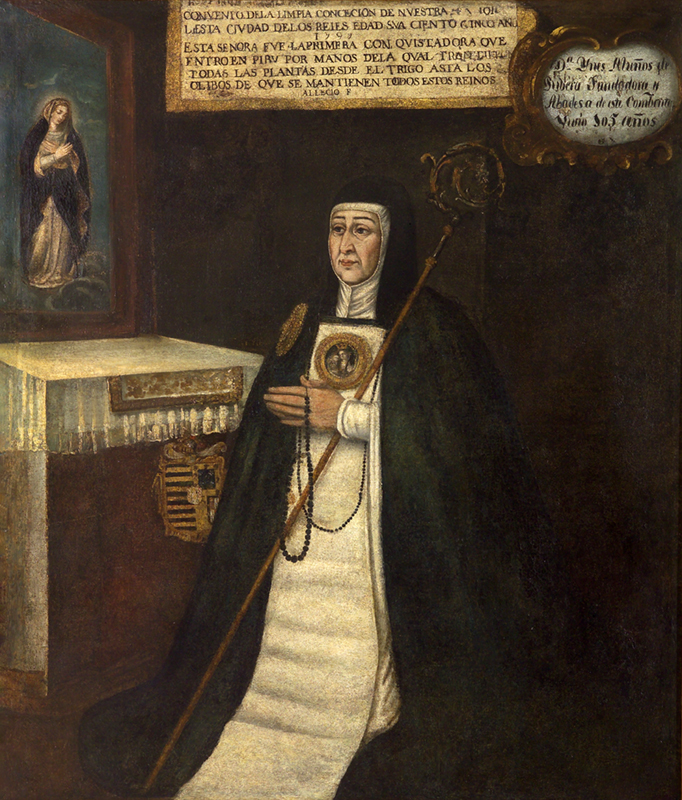 CONVENTO, DE LA LIMPIA CONCECION DE NVESTRA
DESTA CIVDAD DELOS REIES EDAD SVA CIENTO CINCO AÑO
ESTA SENORA FVE LAPRIMERA CON QVISTADORA QVE
ENTRO EN PIRV POR MANOS DELA QVAL
TODAS LAS PLANTAS DESDE EL TRIGO ASTA LOS
OLIBOS DE QVE SE MANTIENEN TODOS ESTOS REINOS
F
Dª Ynes Muños de
Ribera Fundadora y
Abadesa de este Combento
105 años